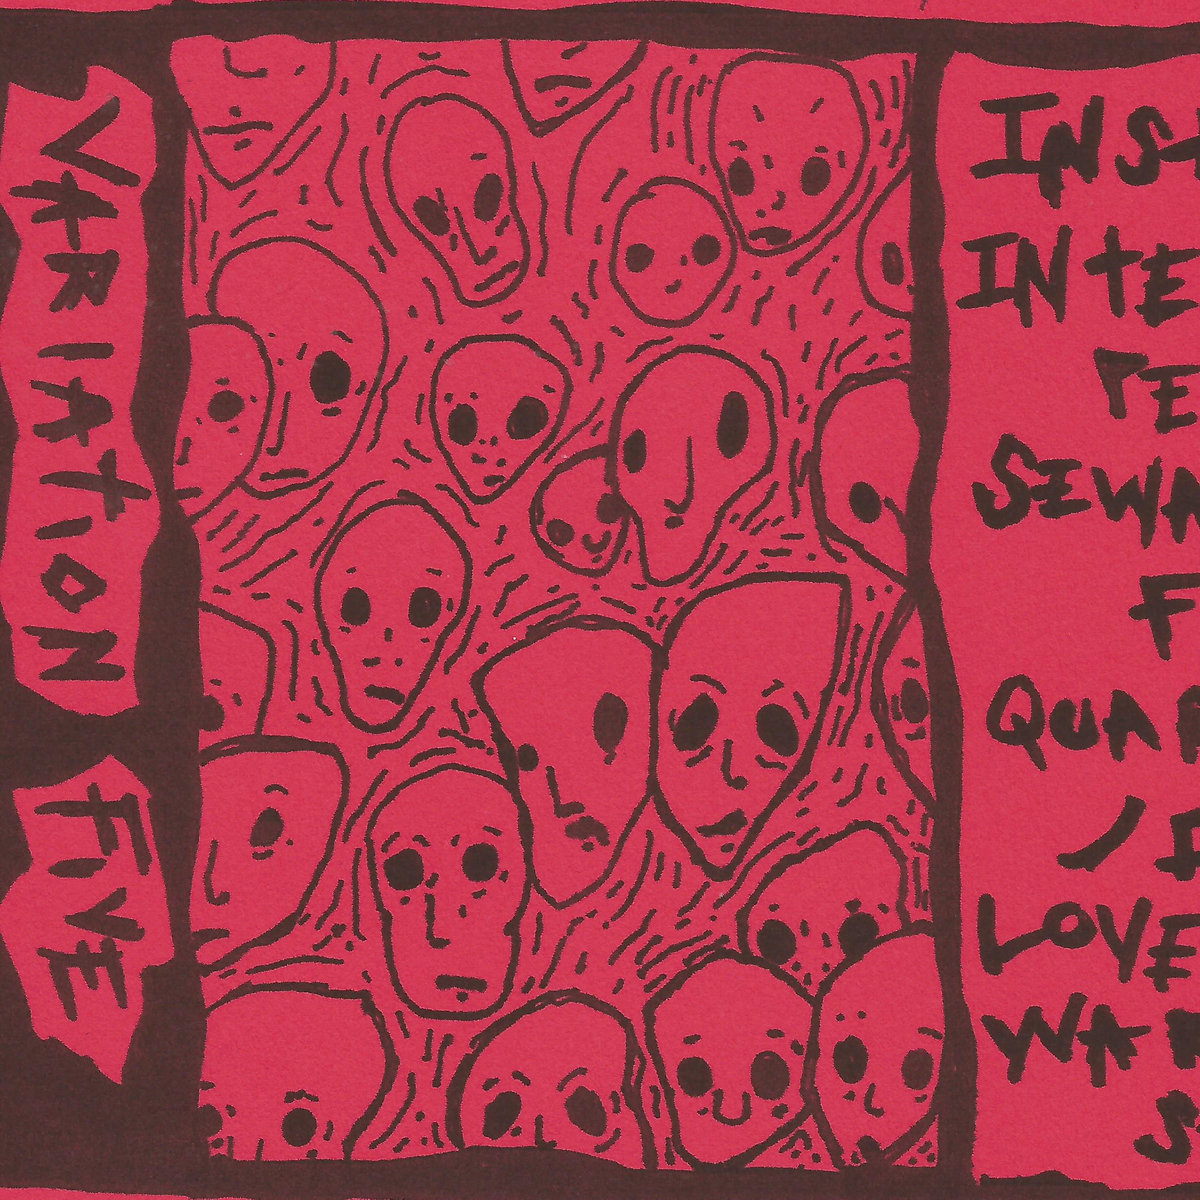 VARIATION FIVE
INS
INTE
PE
SEWA
F
QUA
/
LOVE
WA
S